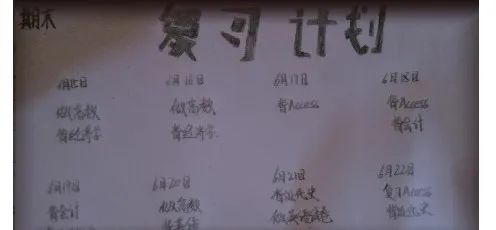 期末
复习计划
6月15日 6月16日 6月17日 6月18日
做高数 做高数 看Access 看Access
看经济学 看经济学 看会计
6月19日 6月20日 6月21日 6月22日
看会计 做高数 看近代史 复习Access
看近代史